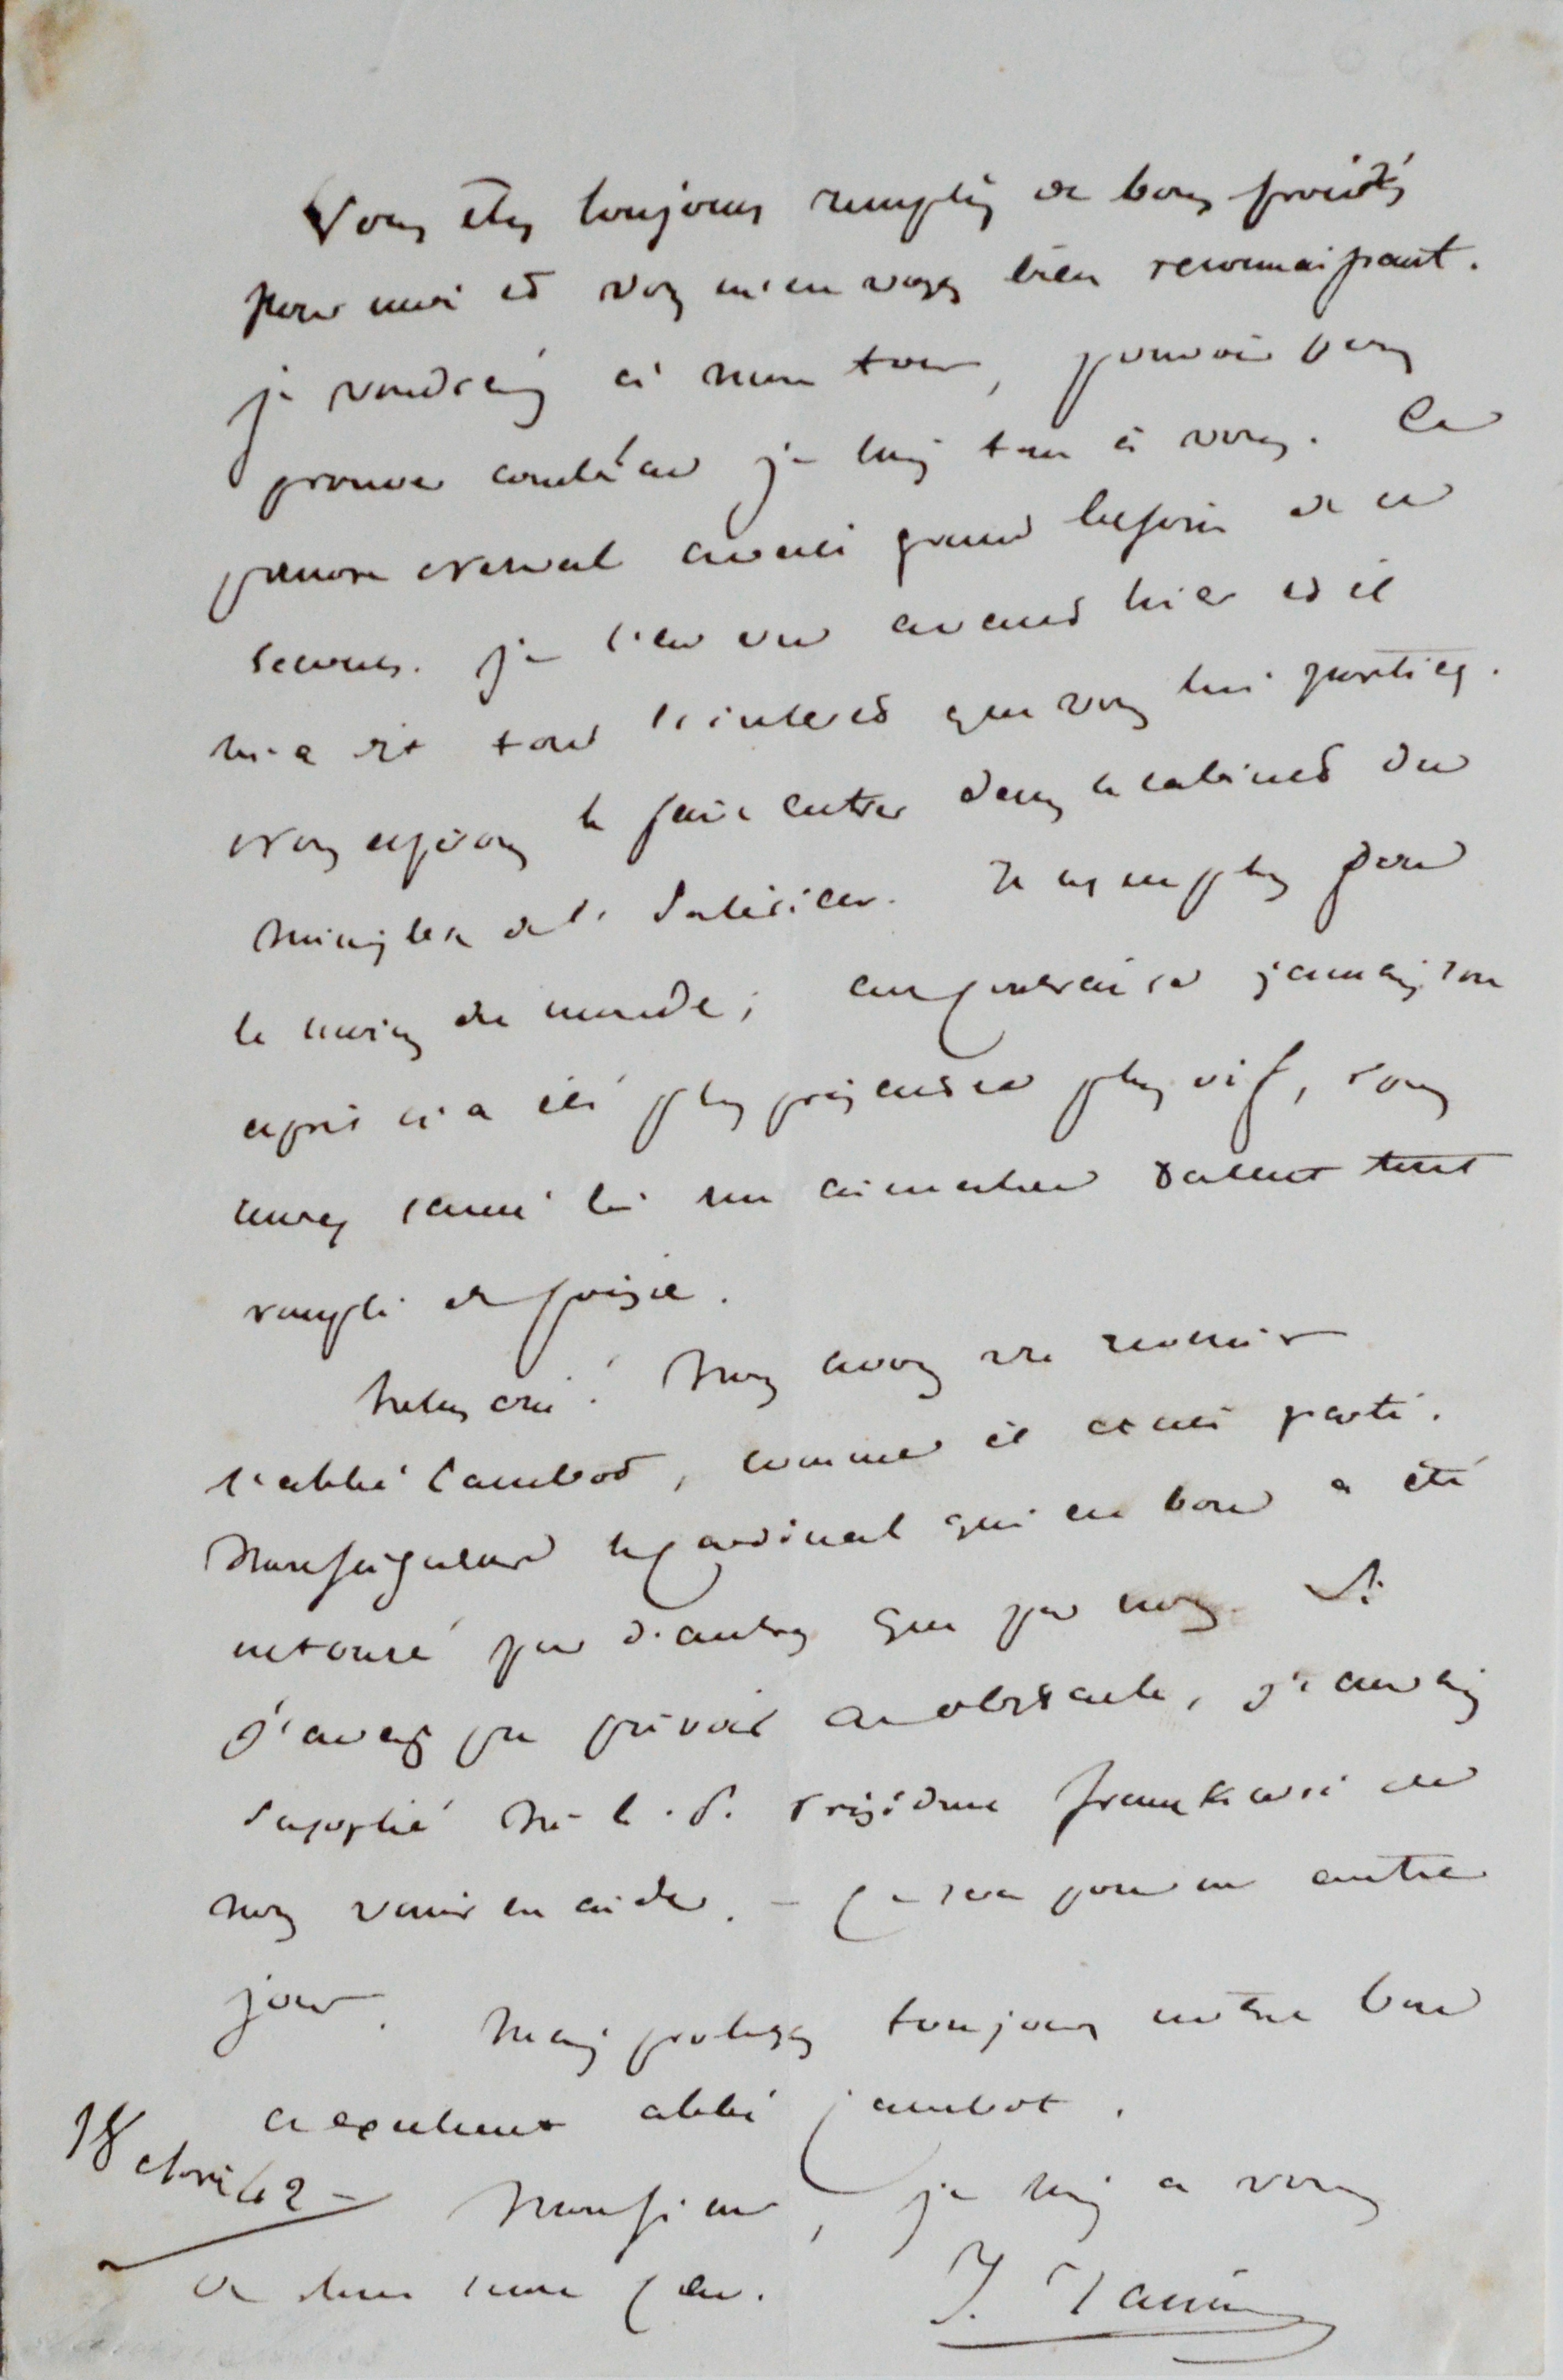 Vous êtes toujours remplis de bons procédés
pour moi et vous m'en voyez bien reconnaissant.
je voudrais à mon tour, pouvoir vous
prouver combien je suis tout à vous. Ce
pauvre Nerval avait grand besoin de ce
secours. je l'ai vu avant hier et il
m'a dit tout l'intérêt que vous lui portiez.
Nous espérons le faire entrer dans le cabinet du
ministre de l'intérieur. Il n'est plus fou
le moins du monde; au contraire jamais son
esprit n'a été plus puissant plus vif, vous
aurez sauvé là un aimable talent tout
rempli de poésie.
hélas oui! Nous avons vu revenir
l'abbé Jambot, comme il était parti.
Monseigneur le Cardinal qui est bon a été
entouré par d'autres que par nous. Si
j'avais pu prévoir cet obstacle, j'aurais
supplié M. le
nous venir en aide. - Ce sera pour un autre
jour. Mais protégez toujours notre bon
et excellent abbé Jambot.
18 avril 42 -
Monsieur, je suis à vous
de tout mon cœur.
J. Janin